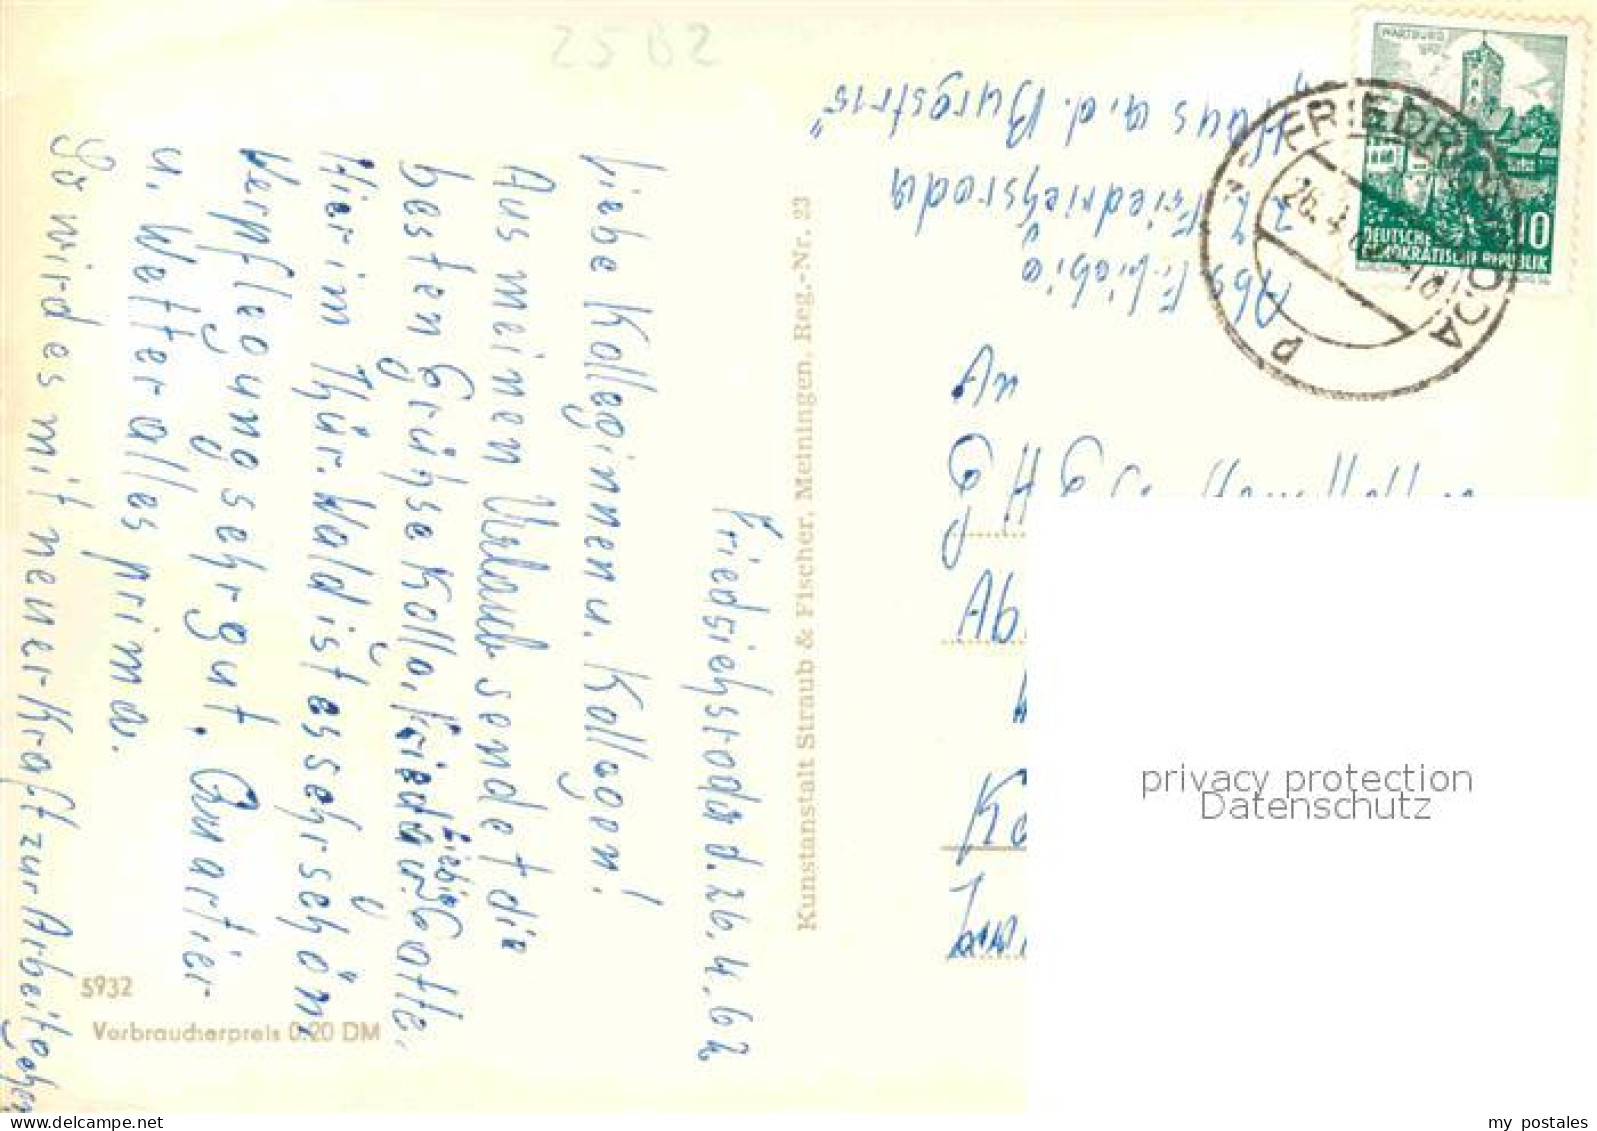 25 B 2
Friedrichsroda d. 26.4.62
Liebe Kolleginnen u. Kollegen!
Aus meinen Urlaub sendet die
besten Grühse Kolle. Frieda u. Gatte.
Liebig
Hier im Thür. Wald ist es sehr schön
Verpflegung sehr gut. Quartier
u. Wetter alles prima.
So wird es mit neuer Kraft zur Arbeit gehen
5932
Verbraucherpreis 0,20 DM
Kunstanstalt Straub & Fischer, Meiningen, Reg.-Nr. 23
Abs. Liebig
z. Z. Friedrichsroda
"Haus a. d. Burgstr. 15"
WARTBURG
DEUTSCHE
DEMOKRATISCHE REPUBLIK
10
FRIEDRICHRODA
An
PGH
Ab
privacy protection
Datenschutz
my postales